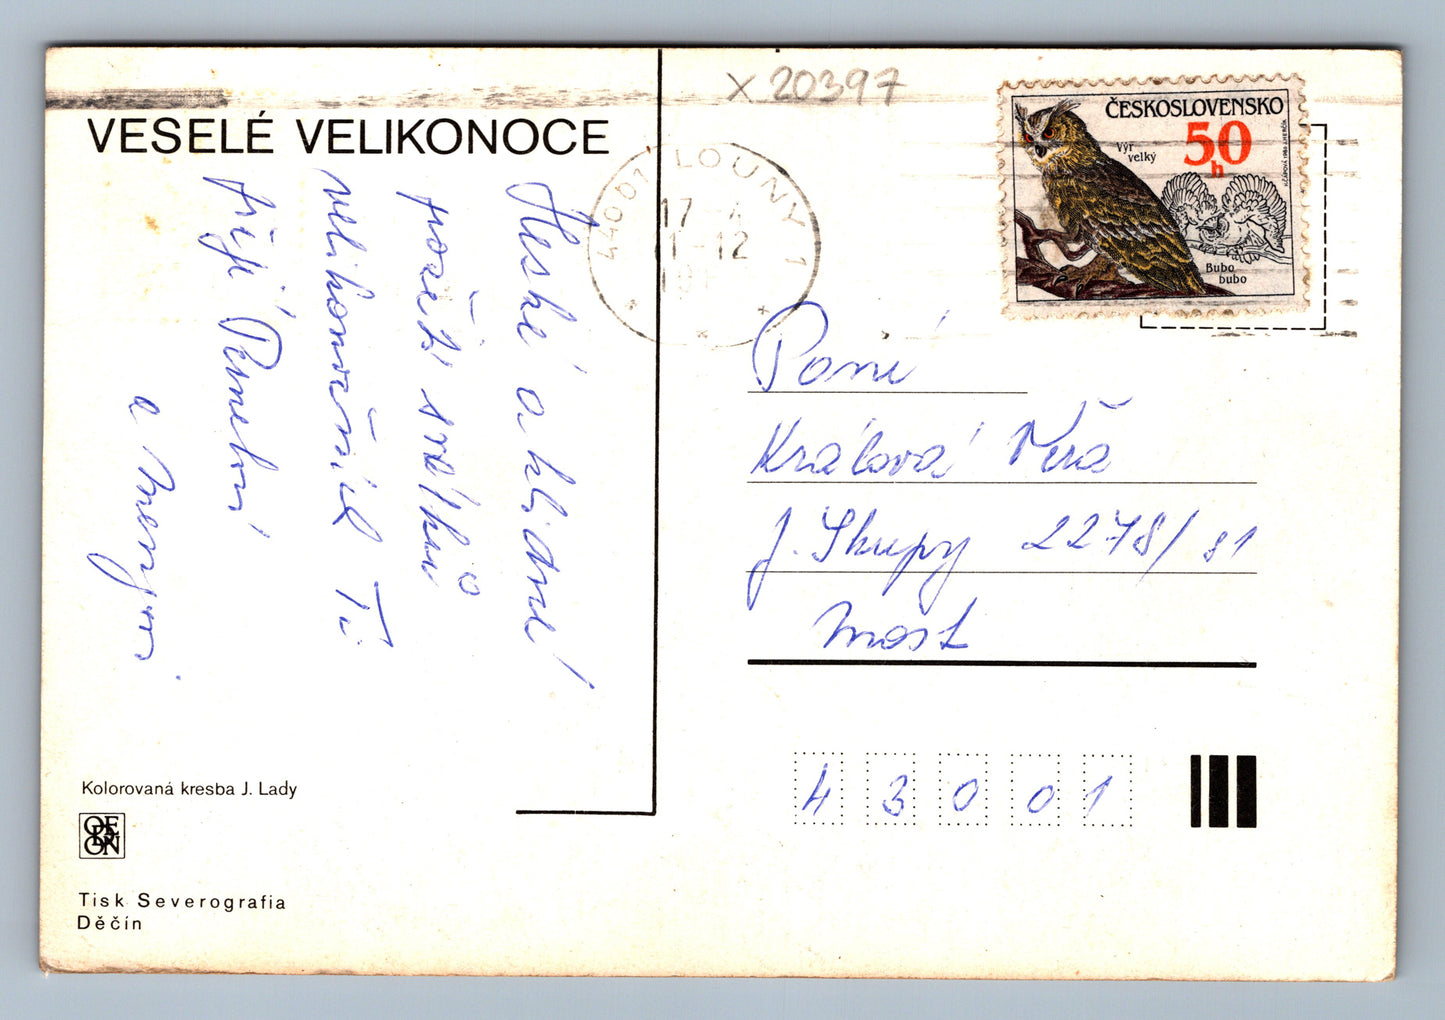 X 20397
VESELÉ VELIKONOCE
Heské a klidné
prožití svátků
velikonočních Ti
přejí
a
44001 LOUNY 1
17
11-12
ČESKOSLOVENSKO
50
h
Výr
velký
Bubo
bubo
Paní
Králová Věra
J. Skupy 2278/81
Most
43001
Kolorovaná kresba J. Lady
Tisk Severografia
Děčín